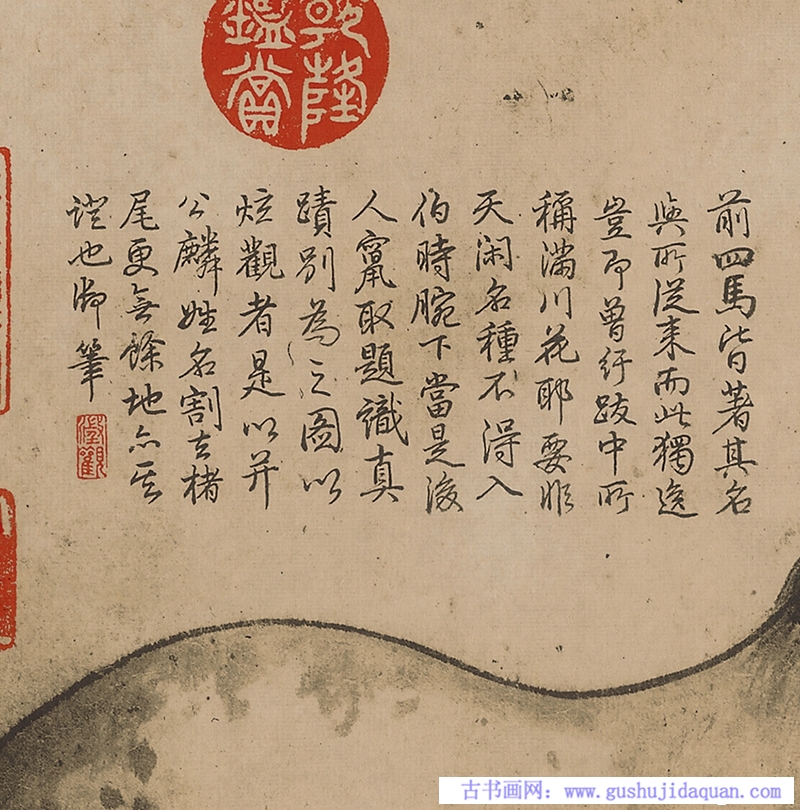 乾隆
鑑賞
前四馬皆著其名
與所從來而此獨逸
豈即曾紆跋中所
稱滿川花耶要非
天閑名種不得入
伯時腕下當是後
人竄取題識真
蹟別為之圖以
炫觀者是以并
公麟姓名割去楮
尾更無餘地亦其
證也御筆
古书画网：www.gushujidaquan.com